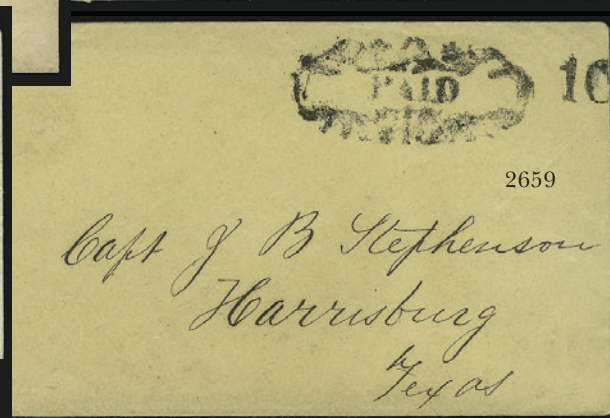 PAID
10
2659
Capt J B Stephenson
Harrisburg
Texas